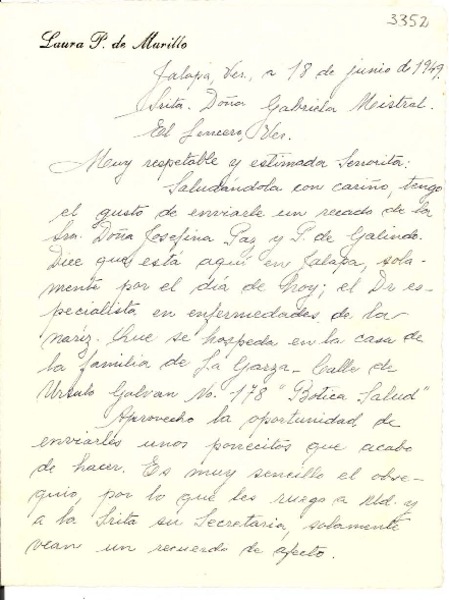 3352
Laura P. de Murillo
Jalapa, Ver., a 18 de junio de 1949.
Srita. Doña Gabriela Mistral.
El Lencero, Ver.
Muy respetable y estimada Señorita:
Saludándola con cariño, tengo
el gusto de enviarle un recado de la
Sra. Doña Josefina Paz y P. de Galindo.
Dice que está aquí en Jalapa, sola-
mente por el día de hoy; el Dr. es-
pecialista en enfermedades de la
naríz. Que se hospeda en la casa de
la familia de La Garza - Calle de
Ursulo Galvan No. 178 "Botica Salud"
Aprovecho la oportunidad de
enviarles unos panecitos que acabo
de hacer. Es muy sencillo el obse-
quio, por lo que les ruego a Ud. y
a la Srita su Secretaria, solamente
vean un recuerdo de afecto.